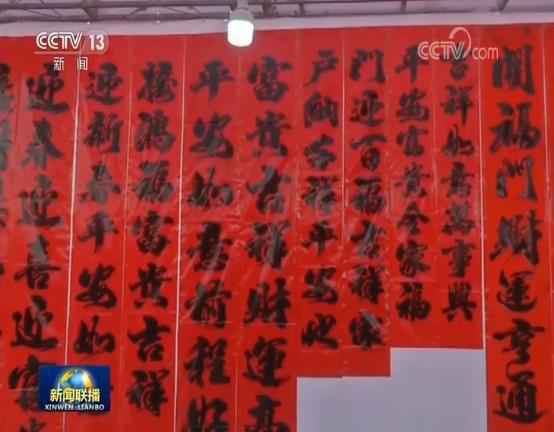 CCTV 13
新闻
CCTV.com
開福门财運亨通
吉祥如意萬事興
平安富貴全家福
门迎百福吉祥家
户纳吉祥平安地
富貴吉祥财運高
平安如意前程好
接鸿福富貴吉祥
迎新春平安如
迎春迎喜迎
新闻联播
XINWEN LIANBO